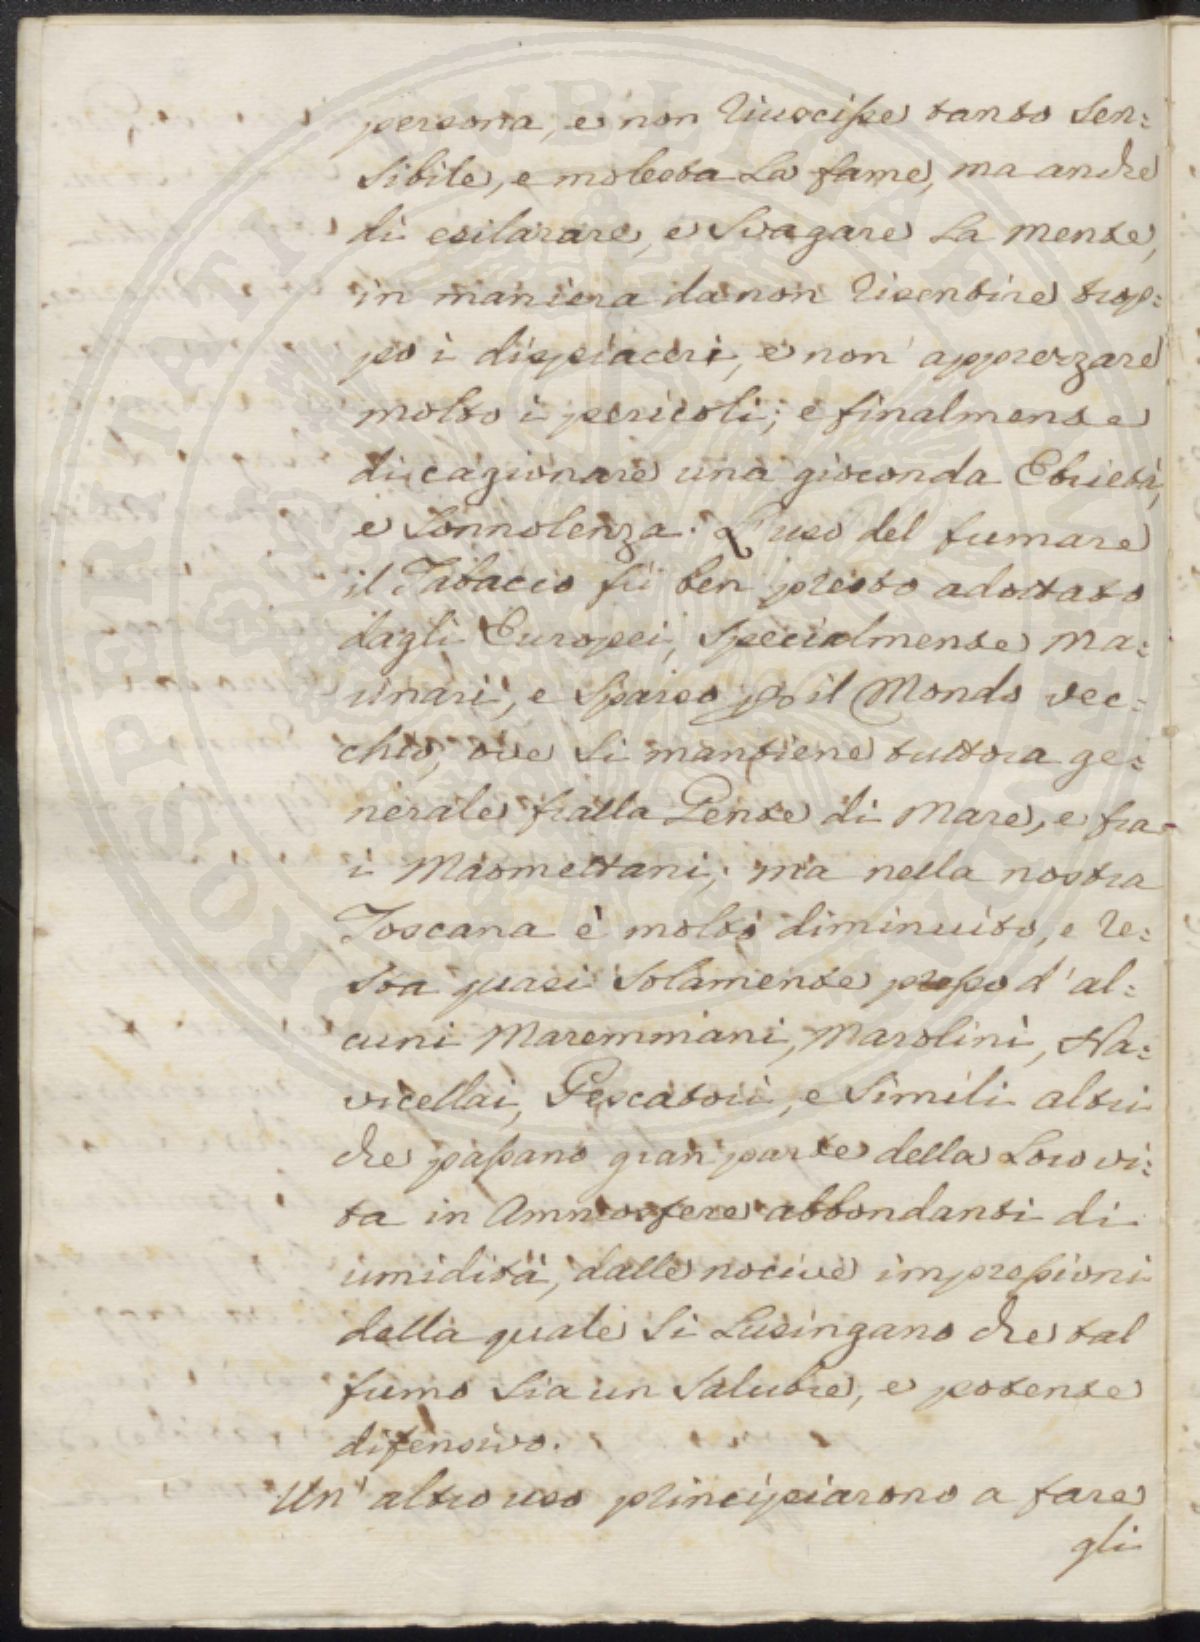 persona, e non riuscisse tanto sen:
sibile, e molesta la fame, ma anche
di esilarare, e svagare la mente,
in maniera da non risentire trop:
po i dispiaceri, e non apprezzare
molto i pericoli; e finalmente
di cagionare una gioconda Ebrietà,
e sonnolenza. L'uso del fumare
il Tabacco fù ben presto adottato
dagli Europei, specialmente Ma:
rinari, e sparso per il Mondo vec:
chio, ove si mantiene tuttora ge:
nerale fralla Gente di Mare, e fra
i Maomettani; ma nella nostra
Toscana è molto diminuito, e re:
sta quasi solamente presso d'al:
cuni Maremmani, Marolini, Na:
vicellai, Pescatori, e simili altri
che passano gran parte della loro vi:
ta in Ammosfere abbondanti di
umidità, dalle nocive impressioni
della quale si lusingano che tal
fumo sia un salubre, e potente
difensivo.
Un' altro uso principiarono a fare
gli
PROSPERITATI PUBLICAE